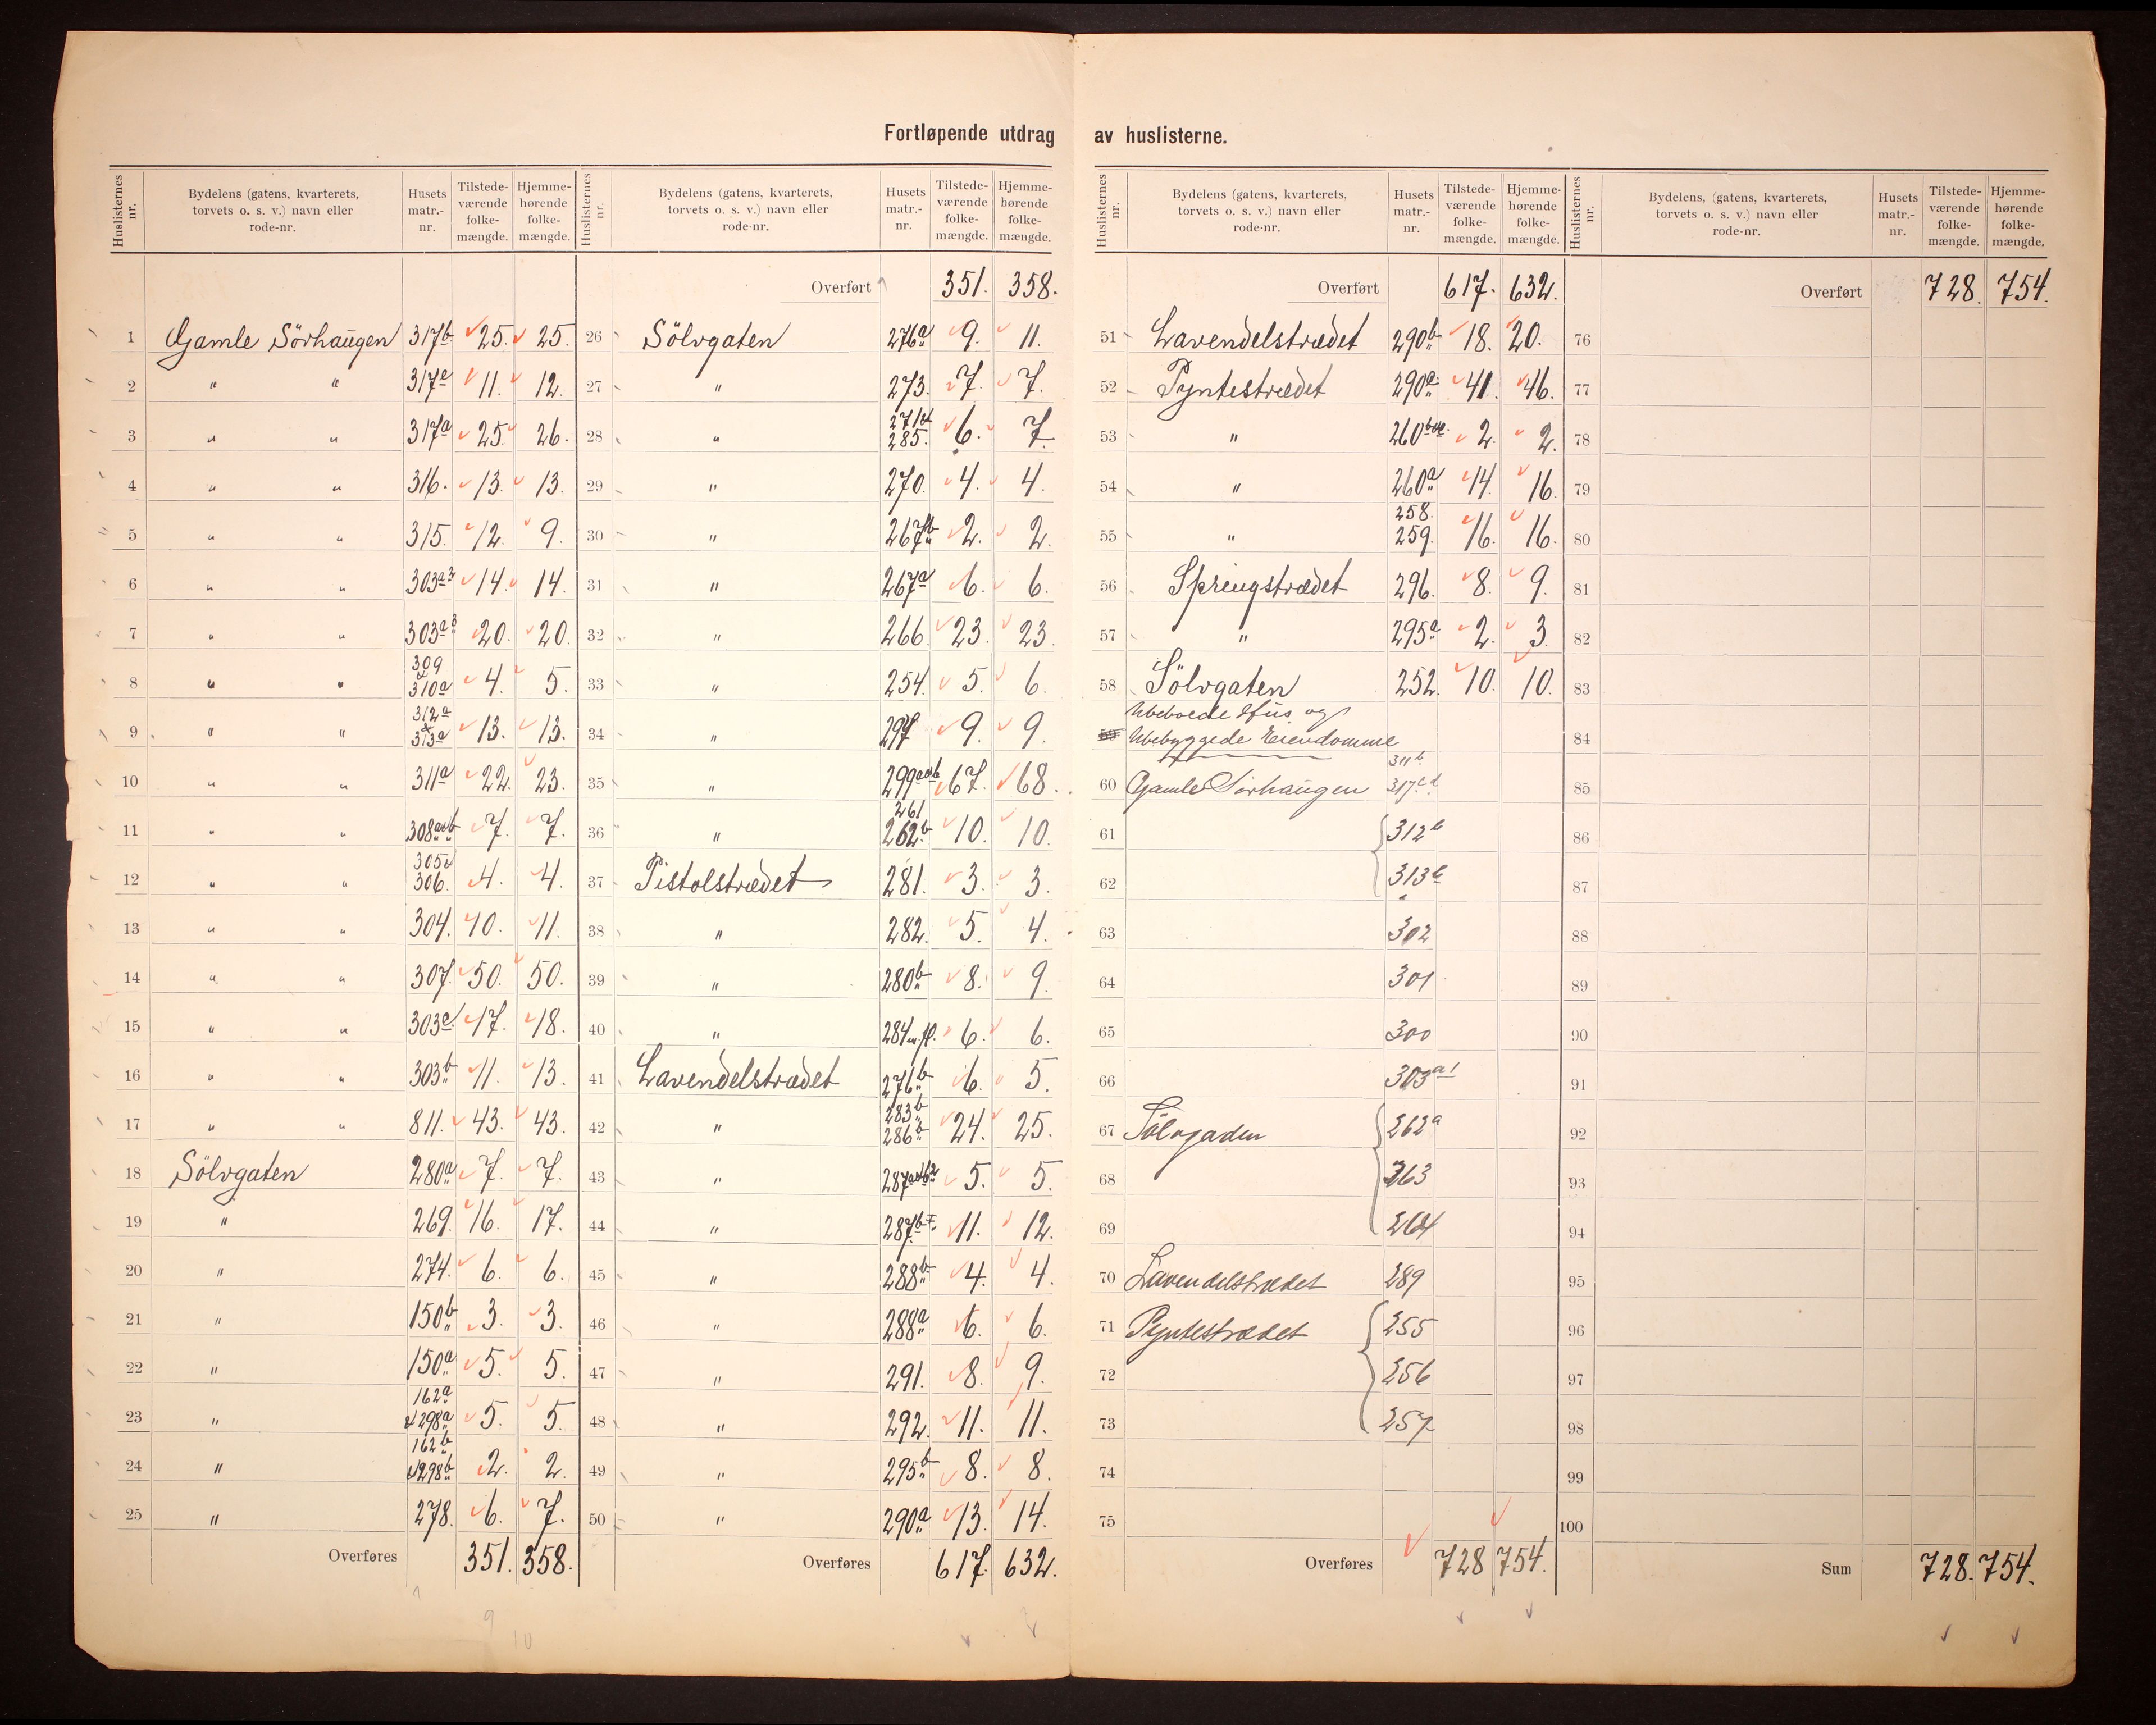 Fortløpende utdrag av huslisterne.
Huslisternes nr. Bydelens (gatens, kvarterets, torvets o. s. v.) navn eller rode-nr. Husets matr.-nr. Tilstedeværende folkemængde. Hjemmehørende folkemængde.
1 Gamle Sörhaugen 317b 25. 25.
2 " " 317c 11. 12.
3 " " 317a 25. 26.
4 " " 316. 13. 13.
5 " " 315. 12. 9.
6 " " 303a2 14. 14.
7 " " 303a3 20. 20.
8 " " 309 & 310a 4. 5.
9 " " 312a & 313a 13. 13.
10 " " 311a 22. 23.
11 " " 308a&b 7. 7.
12 " " 305 & 306. 4. 4.
13 " " 304. 10. 11.
14 " " 307. 50. 50.
15 " " 303c 17. 18.
16 " " 303b 11. 13.
17 " " 811. 43. 43.
18 Sölvgaten 280a 7. 7.
19 " 269. 16. 17.
20 " 274. 6. 6.
21 " 150b 3. 3.
22 " 150a 5. 5.
23 " 162a & 298a 5. 5.
24 " 162b & 298b 2. 2.
25 " 278. 6. 7.
Overføres 351. 358.
9
10
Huslisternes nr. Bydelens (gatens, kvarterets, torvets o. s. v.) navn eller rode-nr. Husets matr.-nr. Tilstedeværende folkemængde. Hjemmehørende folkemængde.
Overført 351. 358.
26 Sölvgaten 276a 9. 11.
27 " 273. 7. 7.
28 " 271 & 285. 6. 7.
29 " 270. 4. 4.
30 " 267b 2. 2.
31 " 267a 6. 6.
32 " 266. 23. 23.
33 " 254. 5. 6.
34 " 297 9. 9.
35 " 299a&b 67. 68.
36 " 261 262b 10. 10.
37 Pistolstrædet 281. 3. 3.
38 " 282. 5. 4.
39 " 280b 8. 9.
40 " 284 m.fl. 6. 6.
41 Lavendelstrædet 276b 6. 5.
42 " 283b 286b 24. 25.
43 " 5. 5.
44 " 287b I. 11. 12.
45 " 288b 4. 4.
46 " 288a 6. 6.
47 " 291. 8. 9.
48 " 292. 11. 11.
49 " 295b 8. 8.
50 " 290a 13. 14.
Overføres 617. 632.
Huslisternes nr. Bydelens (gatens, kvarterets, torvets o. s. v.) navn eller rode-nr. Husets matr.-nr. Tilstedeværende folkemængde. Hjemmehørende folkemængde.
Overført 617. 632.
51 Lavendelstrædet 290b 18. 20.
52 Pyntestrædet 290a 41. 46.
53 " 260b 2. 2.
54 " 260a 14. 16.
55 " 258. 259. 16. 16.
56 Springstrædet 296. 8. 9.
57 " 295a 2. 3.
58 Sölvgaten 252. 10. 10.
Ubeboede Hus og
59 Ubebyggede Eiendomme
311b
60 Gamle Sörhaugen 317c d
61 312b
62 313b
63 302
64 301
65 300
66 303a1
67 Sölvgaden 262a
68 263
69 264
70 Lavendelstrædet 289
71 Pyntestrædet 255
72 256
73 257
74
75
Overføres 728 754.
Huslisternes nr. Bydelens, (gatens, kvarterets, torvets o. s. v.) navn eller rode-nr. Husets matr.-nr. Tilstedeværende folkemængde. Hjemmehørende folkemængde.
Overført 728. 754.
76
77
78
79
80
81
82
83
84
85
86
87
88
89
90
91
92
93
94
95
96
97
98
99
100
Sum 728. 754.